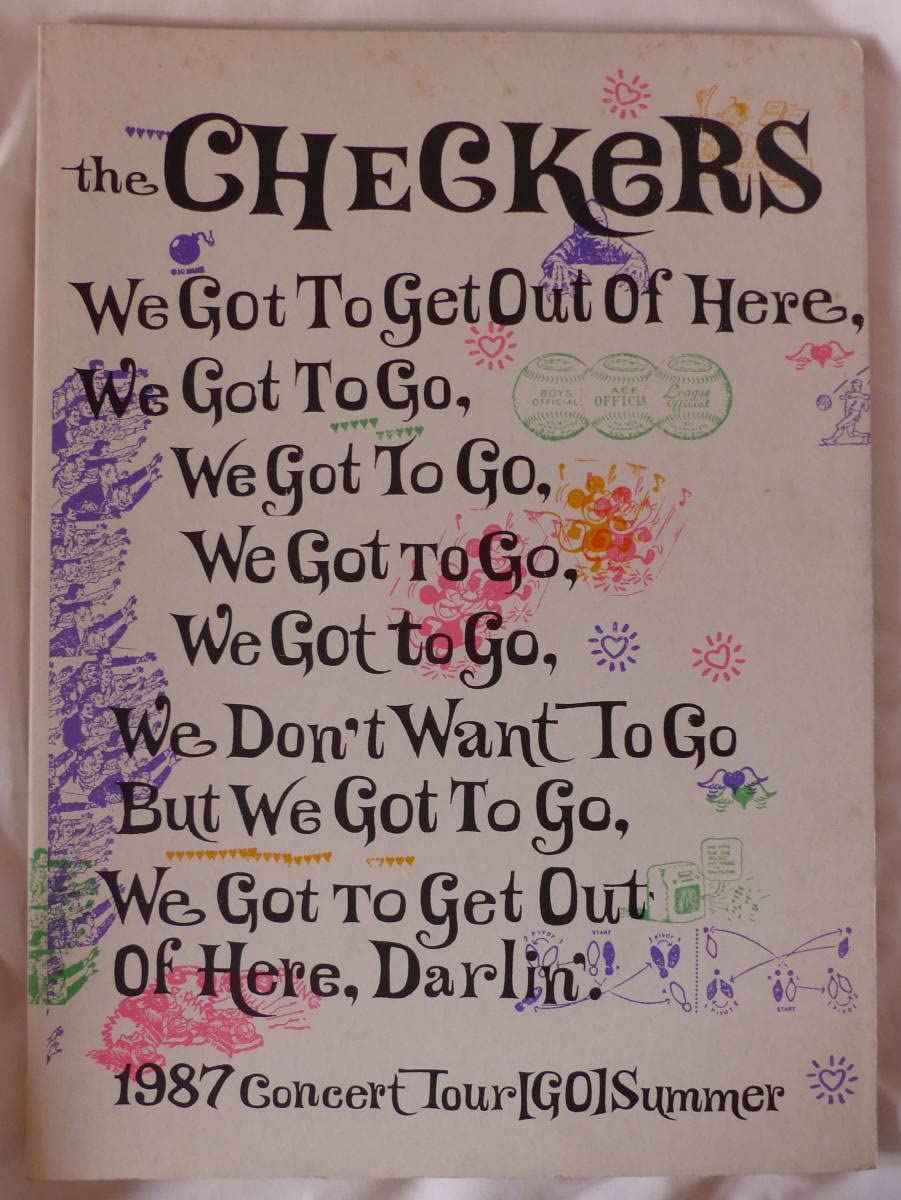 the CHECKERS
We Got To Get Out Of Here,
We Got To Go,
BOYS OFFICIAL.
ACE OFFICIA
League Official
We Got To Go,
We Got To Go,
We Got to Go,
We Don't Want To Go
But We Got To Go,
We Got To Get Out
Of Here, Darlin'.
PIVOT
START
PIVOT
PIVOT
START
PIVOT
1987 Concert Tour [GO] Summer